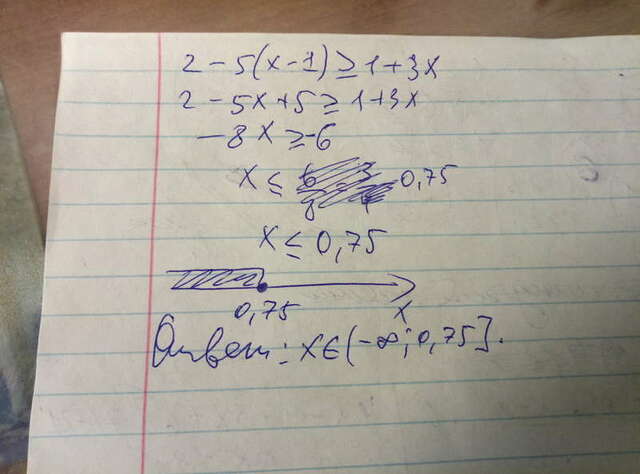 2 - 5(x-1) ≥ 1 + 3x
2 - 5x + 5 ≥ 1 + 3x
- 8x ≥ -6
x ≤ 0,75
x ≤ 0,75
0,75 x
Ответ: x ∈ (-∞; 0,75].